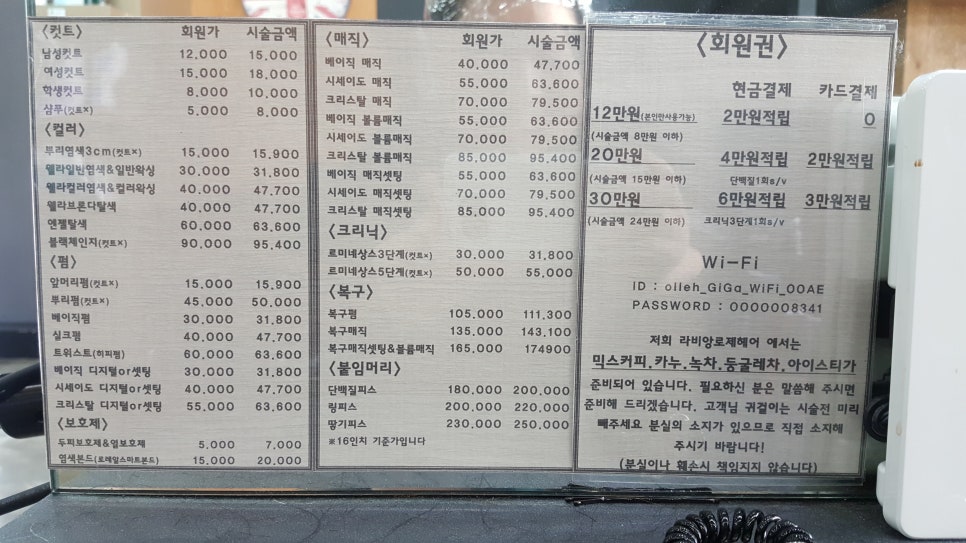 <컷트> 회원가 시술금액
남성컷트 12,000 15,000
여성컷트 15,000 18,000
학생컷트 8,000 10,000
샴푸(컷트×) 5,000 8,000
<컬러>
뿌리염색3cm(컷트×) 15,000 15,900
웰라일반염색&일반왁싱 30,000 31,800
웰라컬러염색&컬러왁싱 40,000 47,700
웰라브론다탈색 40,000 47,700
엔젤탈색 60,000 63,600
블랙체인지(컷트×) 90,000 95,400
<펌>
앞머리펌(컷트×) 15,000 15,900
뿌리펌(컷트×) 45,000 50,000
베이직펌 30,000 31,800
실크펌 40,000 47,700
트위스트(히피펌) 60,000 63,600
베이직 디지털or셋팅 30,000 31,800
시세이도 디지털or셋팅 40,000 47,700
크리스탈 디지털or셋팅 55,000 63,600
<보호제>
두피보호제&열보호제 5,000 7,000
염색본드(로레알스마트본드) 15,000 20,000
<매직> 회원가 시술금액
베이직 매직 40,000 47,700
시세이도 매직 55,000 63,600
크리스탈 매직 70,000 79,500
베이직 볼륨매직 55,000 63,600
시세이도 볼륨매직 70,000 79,500
크리스탈 볼륨매직 85,000 95,400
베이직 매직셋팅 55,000 63,600
시세이도 매직셋팅 70,000 79,500
크리스탈 매직셋팅 85,000 95,400
<크리닉>
르미네상스3단계(컷트×) 30,000 31,800
르미네상스5단계(컷트×) 50,000 55,000
<복구>
복구펌 105,000 111,300
복구매직 135,000 143,100
복구매직셋팅&볼륨매직 165,000 174900
<붙임머리>
단백질피스 180,000 200,000
링피스 200,000 220,000
땋기피스 230,000 250,000
※16인치 기준가입니다
<회원권>
현금결제 카드결제
12만원(본인만사용가능) 2만원적립 0
(시술금액 8만원 이하)
20만원 4만원적립 2만원적립
(시술금액 15만원 이하) 단백질1회s/v
30만원 6만원적립 3만원적립
(시술금액 24만원 이하) 크리닉3단계1회s/v
Wi-Fi
ID : olleh_GiGa_WiFi_00AE
PASSWORD : 0000008341
저희 라비앙로제헤어 에서는
믹스커피,카누,녹차,둥굴레차,아이스티가
준비되어 있습니다. 필요하신 분은 말씀해 주시면
준비해 드리겠습니다. 고객님 귀걸이는 시술전 미리
빼주세요 분실의 소지가 있으므로 직접 소지해
주시기 바랍니다!
(분실이나 훼손시 책임지지 않습니다)